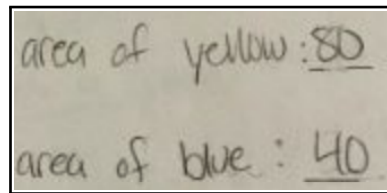 area of yellow: 80
area of blue: 40